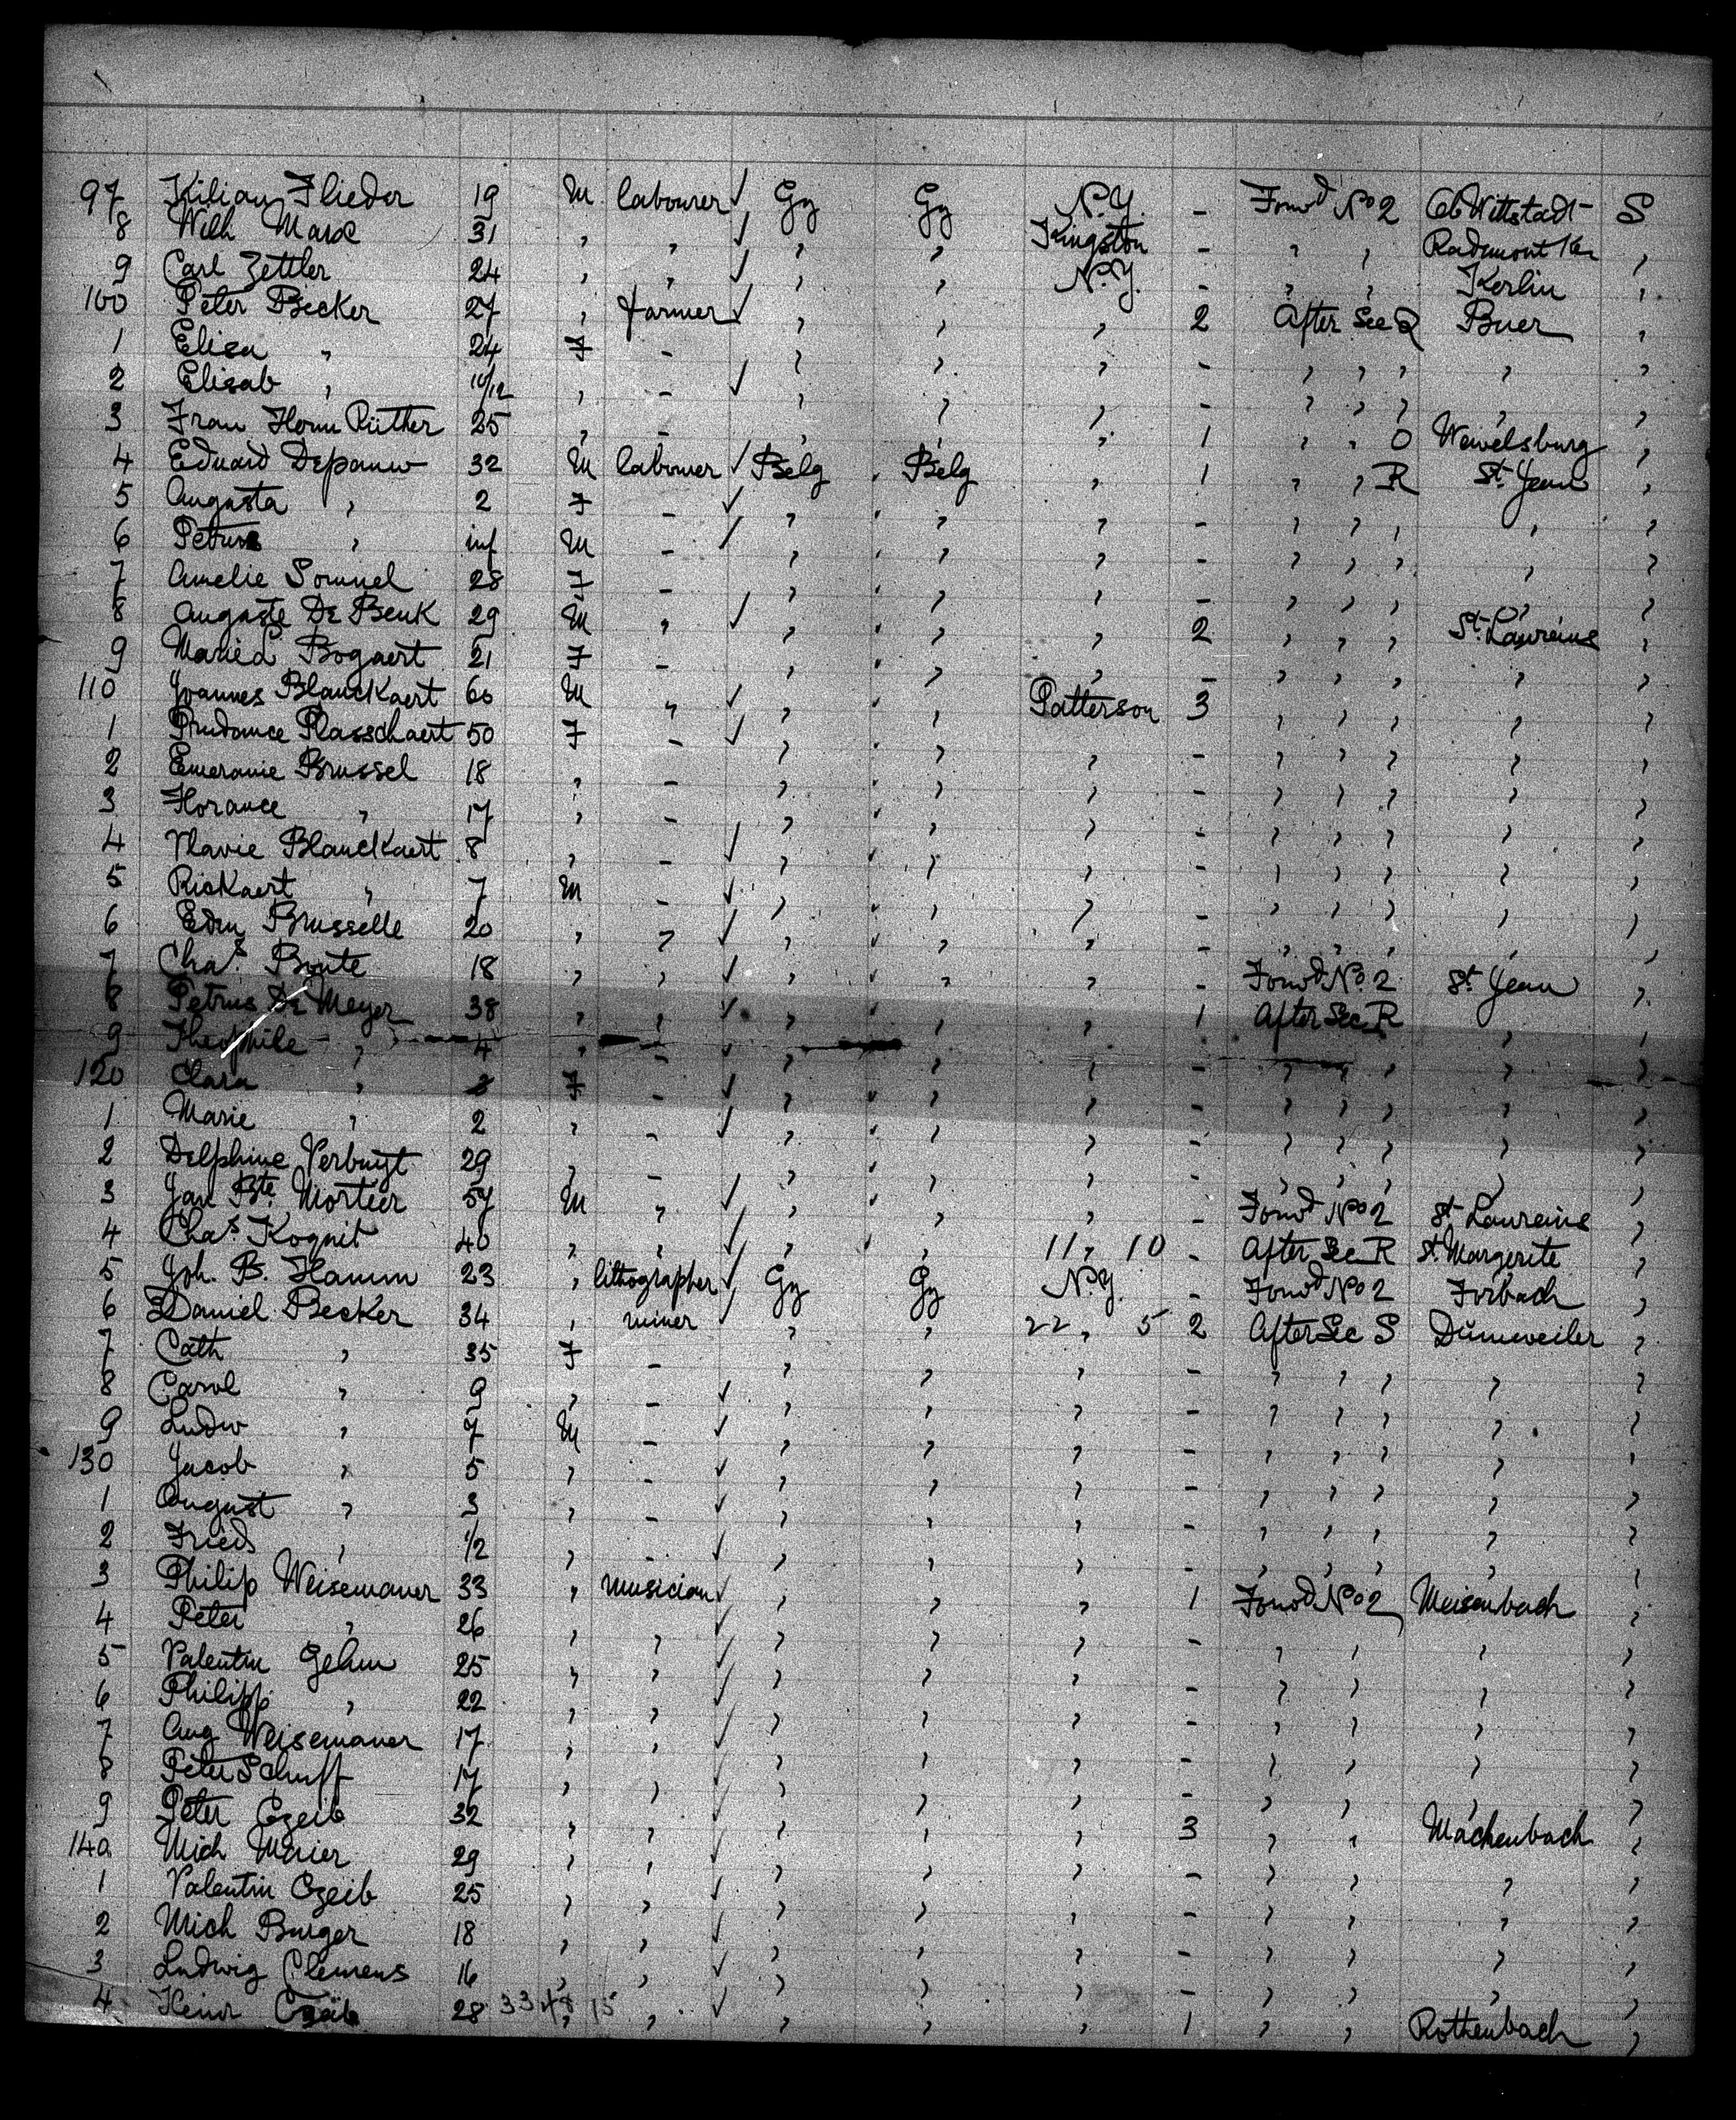 97 Kilian Flieder 19 M labourer ✓ Gy Gy N.Y. - Forwd No 2 Ob Wittstadt S
8 Wilh Marx 31 , , ✓ , , Kingston - , , ,
9 Carl Zettler 24 , , ✓ , , N.Y. - , , Kerlin ,
100 Peter Becker 27 , farmer ✓ , , , 2 After Sec Buer ,
1 Elisa , 24 F - , , , - , , , , ,
2 Elisab , 10/12 , - ✓ , , , - , , , , ,
3 Frau Herm Rüther 25 , - , , , 1 , , O Wewelsburg ,
4 Eduard Depauw 32 M labourer ✓ Belg Belg , 1 , , R St. Jean ,
5 Augusta , 2 F - ✓ , , , - , , , , ,
6 Petrus , inf M - ✓ , , , - , , , , ,
7 Amelie Sommel 28 F - , , , - , , , , ,
8 Auguste De Beuk 29 M , ✓ , , , 2 , , , St. Laureins ,
9 Bogaert 21 F - , , , - , , , , ,
110 Joannes Blanckaert 60 M , ✓ , , Patterson 3 , , , , ,
1 Prudance Plasschaert 50 F - ✓ , , , - , , , , ,
2 Emeranie Brussel 18 , - , , , - , , , , ,
3 Florance , 17 , - , , , - , , , , ,
4 Blanckaert 8 , - ✓ , , , - , , , , ,
5 Rickaert , 7 M - ✓ , , , - , , , , ,
6 Edm Brusselle 20 , , ✓ , , , - , , , , ,
7 Chas. Bonte 18 , , ✓ , , , - Forwd No. 2 St. Jean ,
8 Petrus De Meyer 38 , , ✓ , , , 1 After Sec R , ,
9 Theophile , 4 , - ✓ , , , - , , , , ,
120 Clara , F - ✓ , , , - , , , , ,
1 Marie , 2 , - ✓ , , , - , , , , ,
2 Delphine Verbuyt 29 , - , , , - , , , , ,
3 Jan Bte. Mortier 57 M , ✓ , , , - Forwd No 2 St Laureins ,
4 Chas Kognit 40 , , ✓ , , 11 , 10 - After Sec R St. Margerite ,
5 Joh. B. Hamm 23 , lithographer ✓ Gy Gy N.Y. - Forwd No 2 Forbach ,
6 Daniel Becker 34 , miner ✓ , , 22 , 5 2 After Sec S Dünweiler ,
7 Cath , 35 F - , , , - , , , , ,
8 Carol , 9 , - ✓ , , , - , , , , ,
9 Ludw , 7 M - ✓ , , , - , , , , ,
130 Jacob , 5 , - ✓ , , , - , , , , ,
1 August , 3 , - ✓ , , , - , , , , ,
2 Fried , 1/2 , - ✓ , , , - , , , , ,
3 Philip Weisemauer 33 , musician ✓ , , , 1 Forwd No 2 Meisenbach ,
4 Peter , 26 , , ✓ , , , - , , , ,
5 Valentin Gehm 25 , , ✓ , , , - , , , ,
6 Philipp , 22 , , ✓ , , , - , , , ,
7 Aug Weisemauer 17 , , ✓ , , , - , , , ,
8 Peter Schuff 17 , , ✓ , , , - , , , ,
9 Peter Czeib 32 , , ✓ , , , 3 , , Mackenbach ,
140 Mich Maier 29 , , ✓ , , , - , , , ,
1 Valentin Czeib 25 , , ✓ , , , - , , , ,
2 Mich Burger 18 , , ✓ , , , - , , , ,
3 Ludwig Clemens 16 , , ✓ , , , - , , , ,
4 Heinr Czeib 28 , , ✓ , , , 1 , , Rothenbach ,